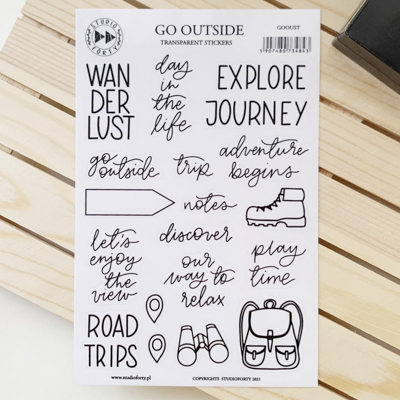 STUDIO
FORTY
GO OUTSIDE
TRANSPARENT STICKERS
GOOUST
5 907460 734843
WAN
DER
LUST
day
in
the
life
EXPLORE
JOURNEY
go
outside
trip
adventure
begins
notes
let's
enjoy
the
view
discover
our
way to
relax
play
time
ROAD
TRIPS
www.studioforty.pl
COPYRIGHTS STUDIOFORTY 2021